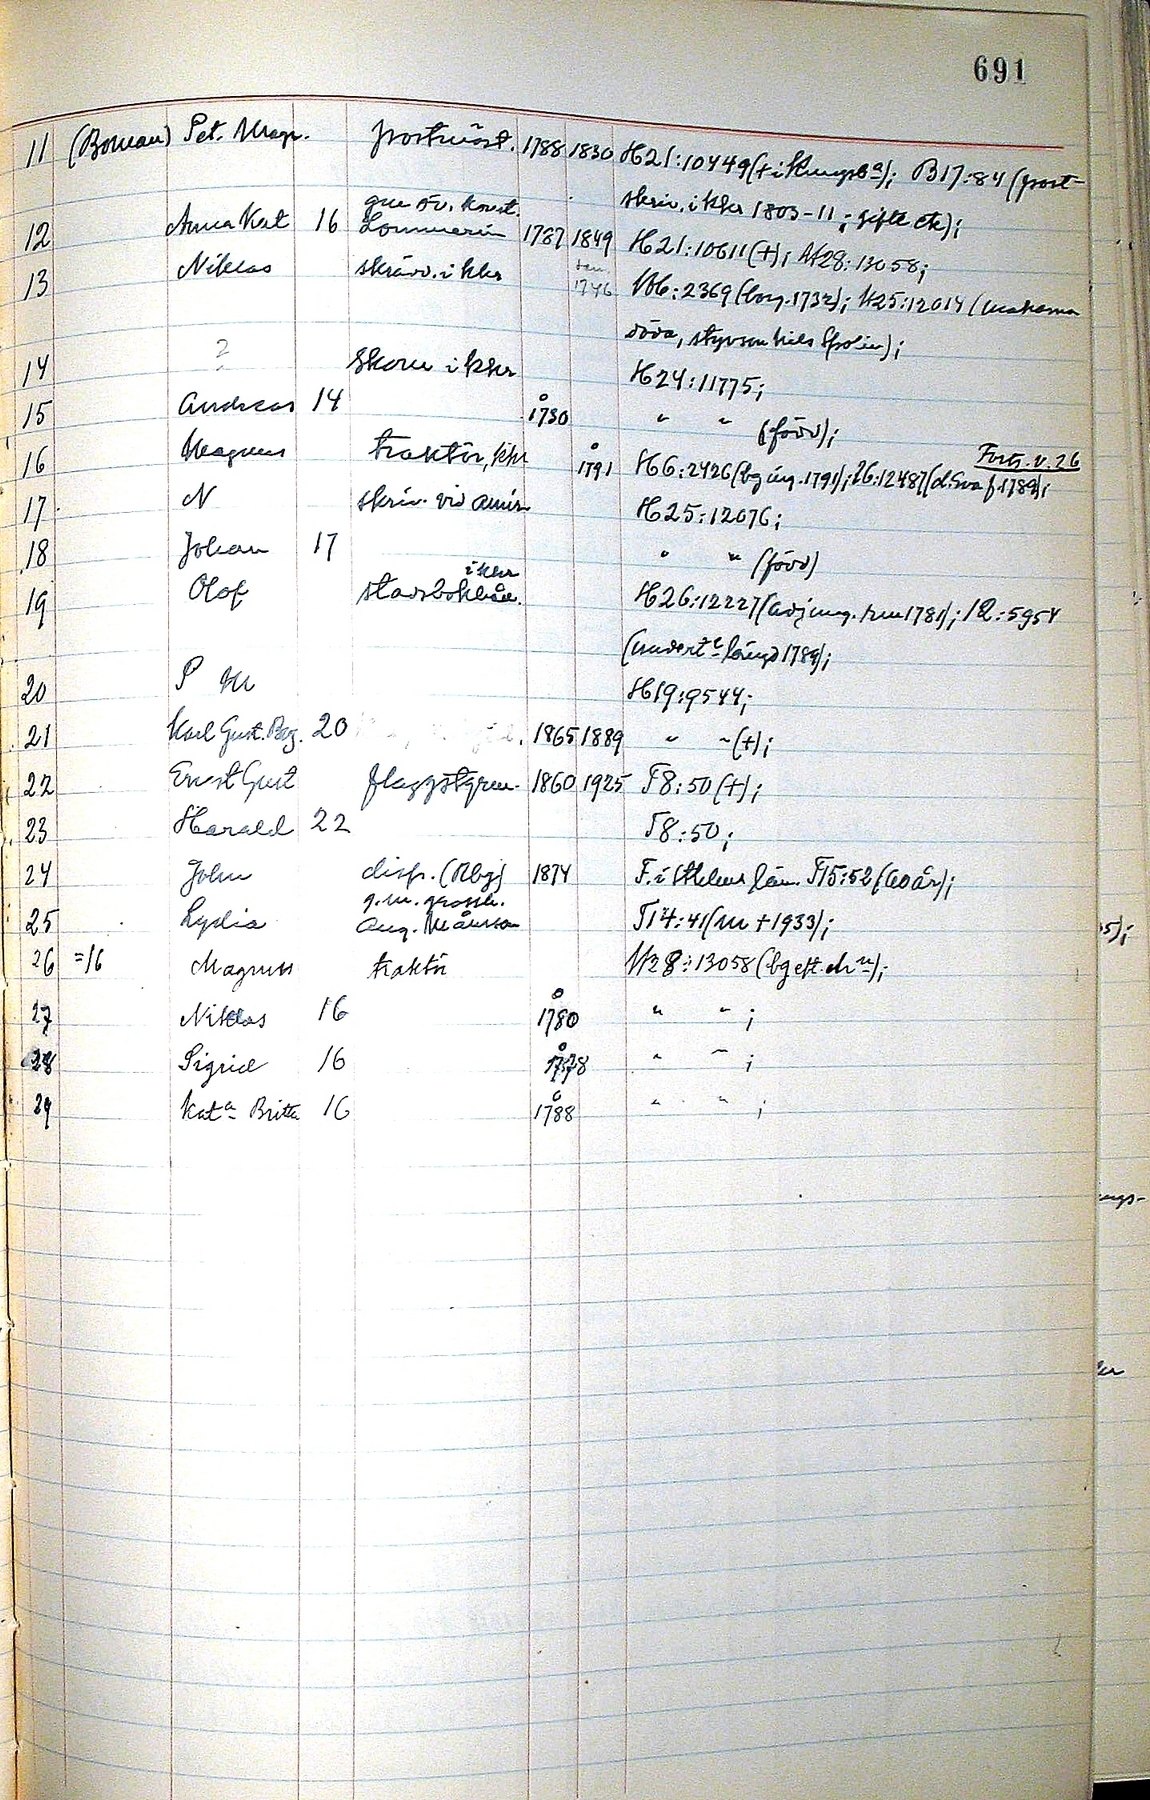 691
11 (Boman) Pet. Magn. postmäst. 1788 1830 H21:10449 (+ i Kungsba); B17:84 (post-
skriv. i kkr 1803-11; gifte etc);
gm öv. konst.
12 Anna Kat 16 Lommerin 1787 1849 H21:10611 (+); H28:13058;
13 Niklas skrädd. i kkr 1746 H6:2369 (borg. 1732); H25:12014 (makarna
döda, styvson Nils);
14 ? Skom i kkr H24:11775;
15 Andreas 14 1730 " " (född);
Forts. v. 26
16 Magnus traktör, kkr 1791 H6:2426 (bg ung. 1791); 26:12487 (d. Eva f 1789);
17 N skriv. vid amir. H25:12076;
18 Johan 17 " " (född)
i kkr
19 Olof stadsbokhåll. H26:12227 (adjung. 1781); 12:5954
(längd 1789);
20 P M H19:9544;
21 Karl Gust. Beg. 20 1865 1889 " " (+);
22 Ernst Gust flaggstyrm. 1860 1925 T8:50 (+);
23 Harald 22 T8:50;
24 John disp. (Nbg) 1874 F. i län. T15:52 (60 år);
g. m. grossh.
25 Lydia Aug. Månsson T14:41 (M + 1933);
26 =16 Magnus traktör H28:13058 (bg eft. dn);
27 Niklas 16 1780 " " ;
28 Sigrid 16 1778 " " ;
29 Kata Britta 16 1788 " " ;